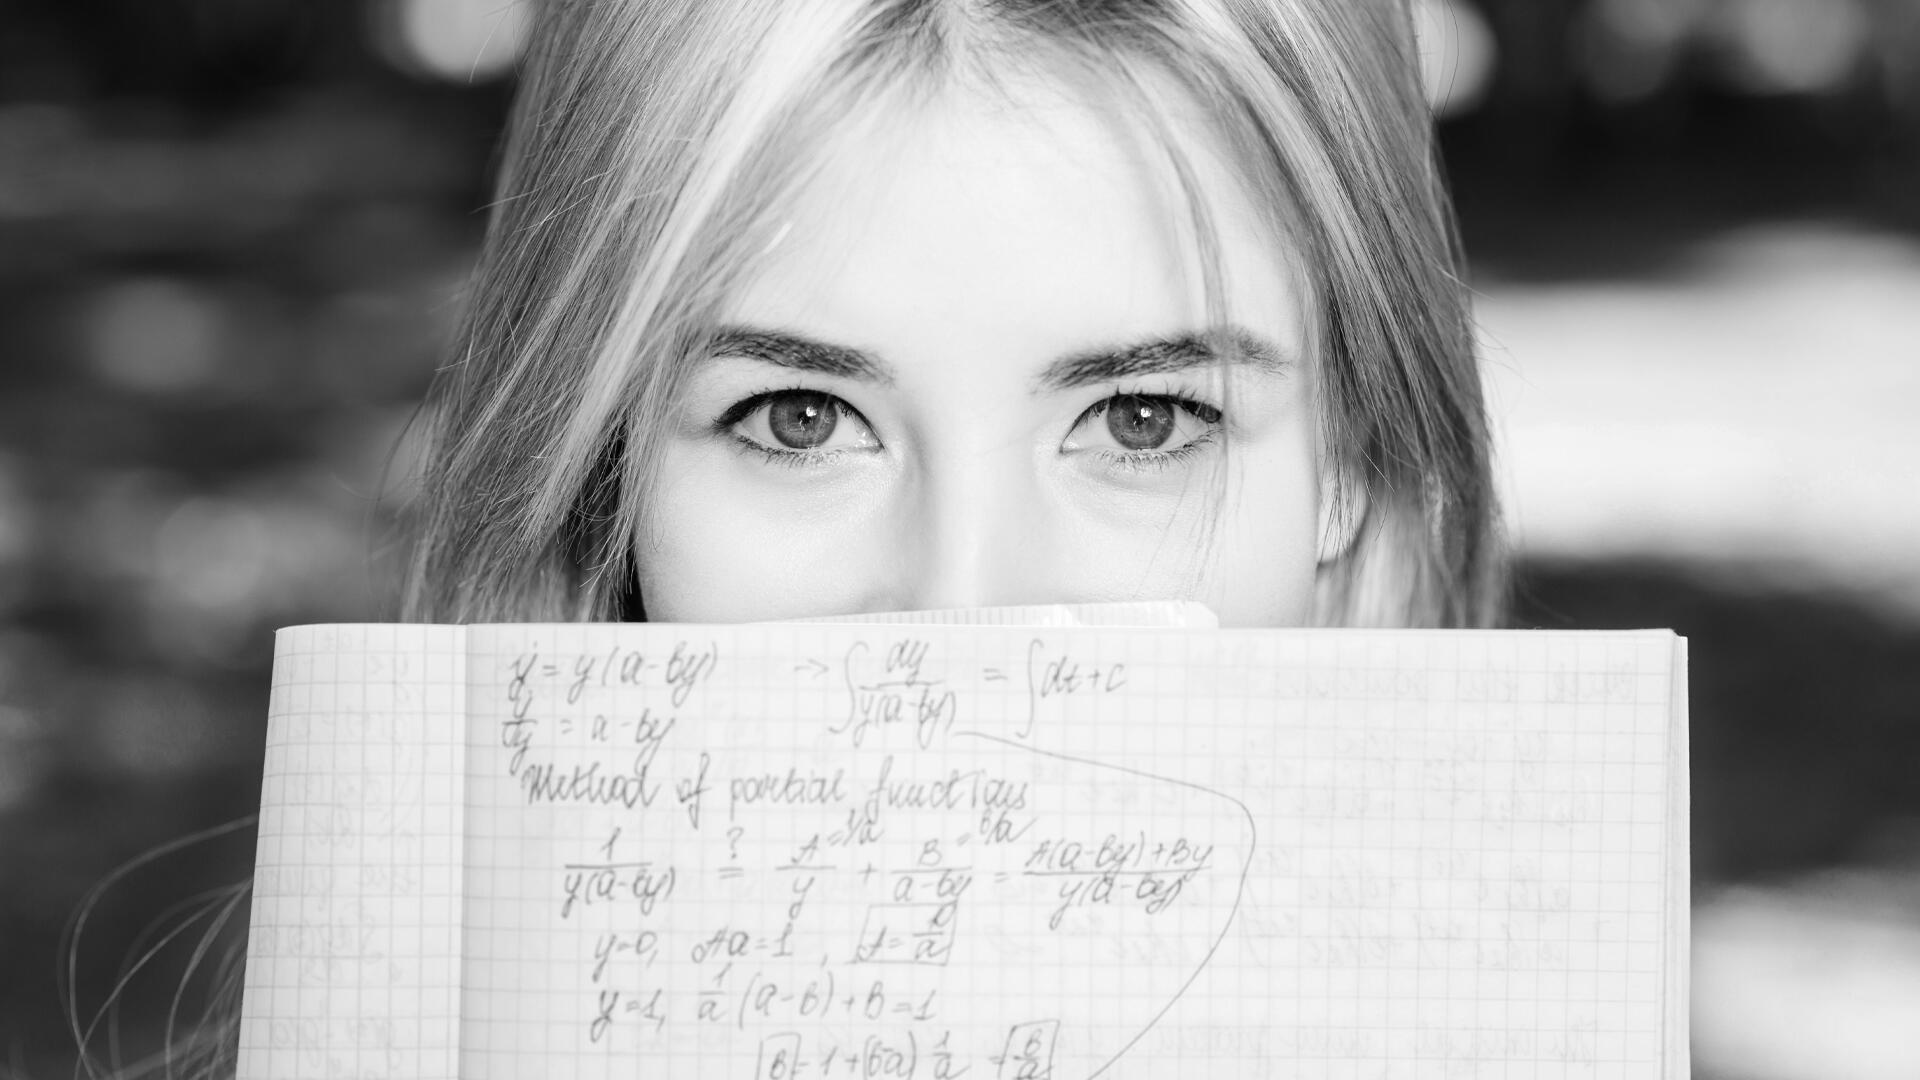 ẏ = y(a-by) → ∫ dy/y(a-by) = ∫dt+c
ẏ/y = a-by
Method of partial functions
1/y(a-by) ?= A/y + B/a-by = A(a-by)+By/y(a-by)
=1/a =b/a
y=0, Aa=1, A=1/a
y=1, 1/a (a-b)+B=1
B=1+(b-a) 1/a = b/a